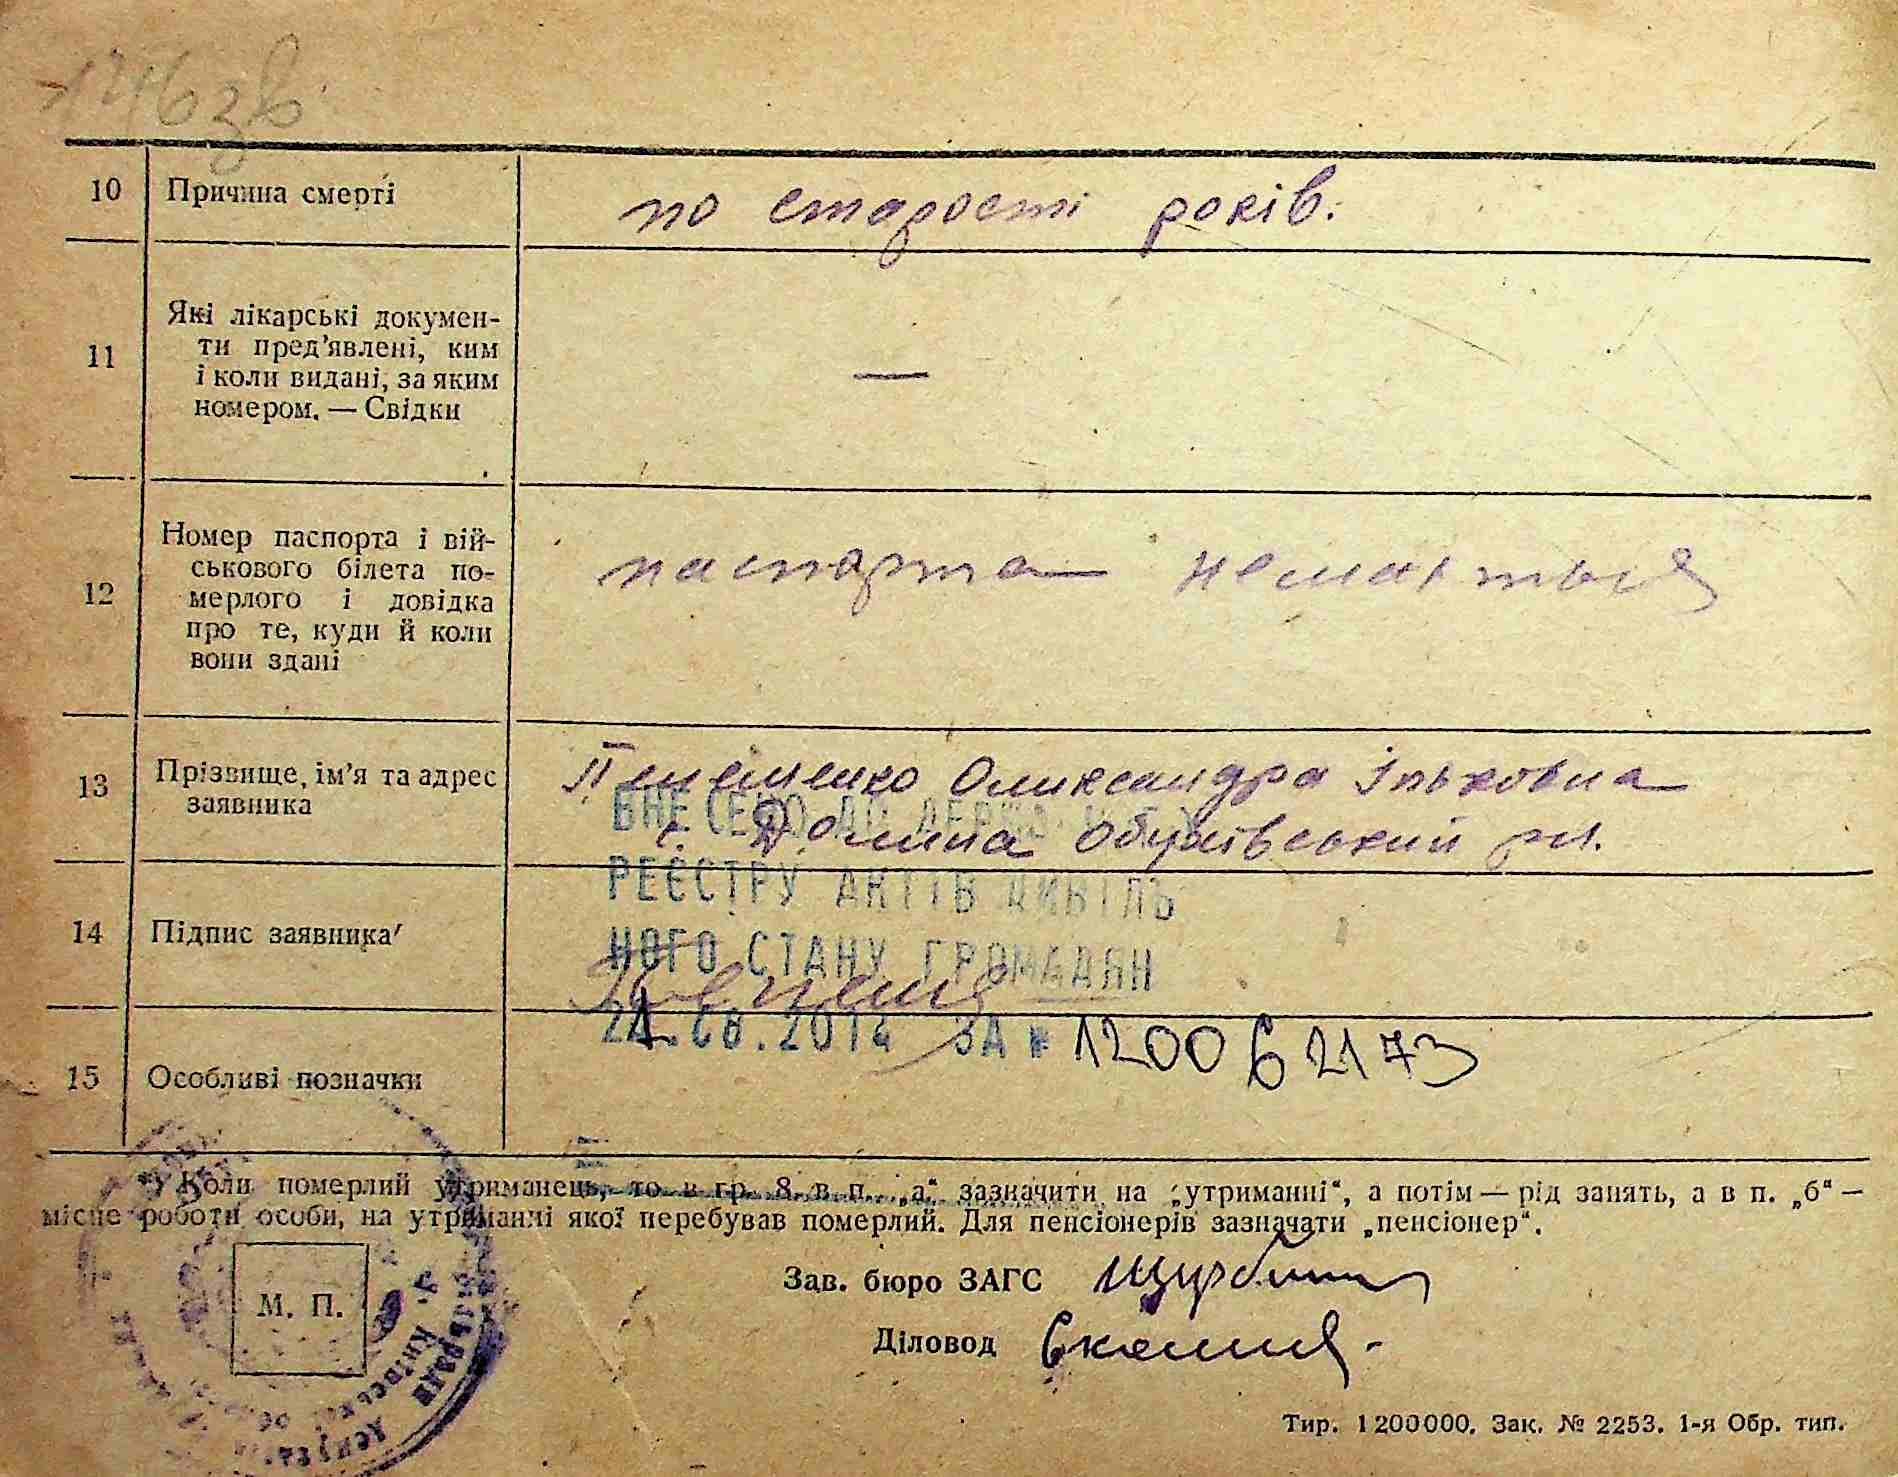 10 Причина смерті по старості років.
11 Які лікарські докумен-
ти пред'явлені, ким
і коли видані, за яким
номером. — Свідки —
12 Номер паспорта і вій-
ськового білета по-
мерлого і довідка
про те, куди й коли
вони здані
паспорта
13 Прізвище, ім'я та адрес
заявника
Олександра Ільковна
с. Долина Обухівський рн.
ВНЕСЕНО ДО
РЕЄСТРУ АКТІВ ЦИВІЛЬ
НОГО СТАНУ ГРОМАДЯН
ЗА № 120062173
14 Підпис заявника
15 Особливі позначки
*) Коли померлий утриманець, то в гр. 8, в п. „а“ зазначити на „утриманні“, а потім — рід занять, а в п. „б“ —
місце роботи особи, на утриманні якої перебував померлий. Для пенсіонерів зазначати „пенсіонер“.
М. П.
Зав. бюро ЗАГС
Діловод
Тир. 1200000. Зак. № 2253. 1-я Обр. тип.